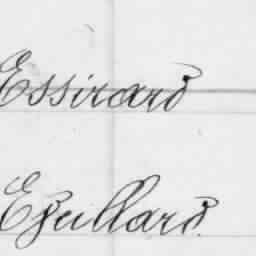 Essirard
Eguillard